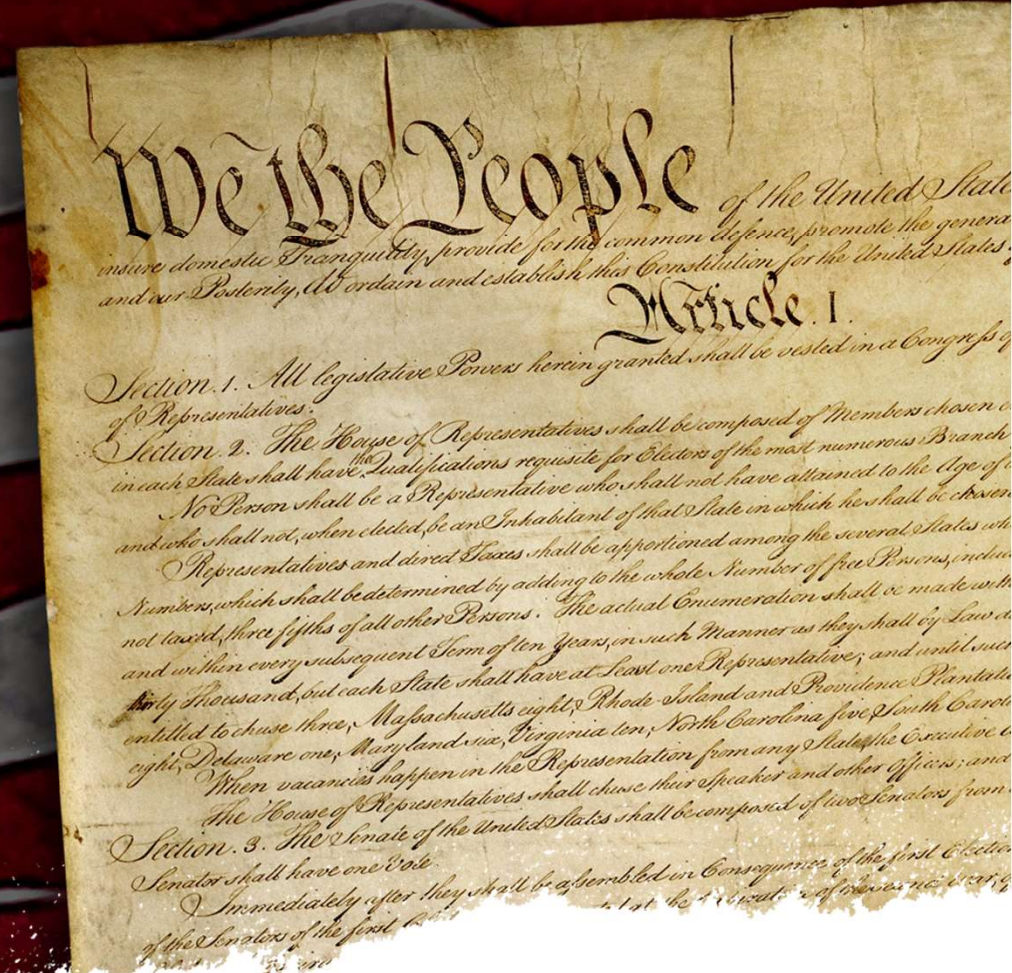 We the People of the United State
insure domestic Tranquility, provide for the common defence, promote the genera
and our Posterity, do ordain and establish this Constitution for the United States
Article. I.
Section. 1. All legislative Powers herein granted shall be vested in a Congress of
of Representatives.
Section. 2. The House of Representatives shall be composed of Members chosen
in each State shall have the Qualifications requisite for Electors of the most numerous Branch
No Person shall be a Representative who shall not have attained to the Age of
and who shall not, when elected, be an Inhabitant of that State in which he shall be chosen
Representatives and direct Taxes shall be apportioned among the several States
Numbers, which shall be determined by adding to the whole Number of free Persons, inclu
not taxed, three fifths of all other Persons. The actual Enumeration shall be made
and within every subsequent Term of ten Years, in such Manner as they shall by Law
thirty Thousand, but each State shall have at Least one Representative; and until
entitled to chuse three, Massachusetts eight, Rhode-Island and Providence Plantati
eight, Delaware one, Maryland six, Virginia ten, North Carolina five, South Carol
When vacancies happen in the Representation from any State, the Executive
The House of Representatives shall chuse their Speaker and other Officers; and
Section. 3. The Senate of the United States shall be composed of two Senators from
Senator shall have one Vote.
Immediately after they shall be assembled in Consequence of the first Electio
of the Senators of the first